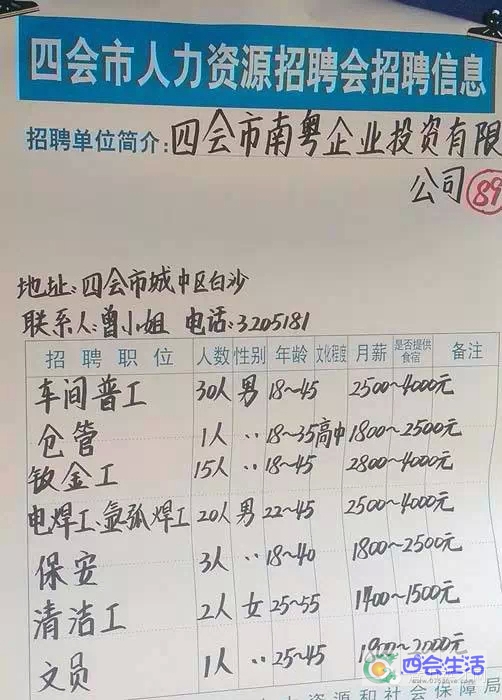 四会市人力资源招聘会招聘信息
招聘单位简介:四会市南粤企业投资有限
公司 89
地址:四会市城中区白沙
联系人:曾小姐 电话:3205181
招聘职位 人数 性别 年龄 文化程度 月薪 是否提供食宿 备注
车间普工 30人 男 18~45 2500~4000元
仓管 1人 〃 18~35 高中 1800~2500元
钣金工 15人 〃 18~45 2800~4000元
电焊工、氩弧焊工 20人 男 22~45 2500~4000元
保安 3人 〃 18~40 1800~2500元
清洁工 2人 女 25~55 1400~1500元
文员 1人 〃 25~45 1900~2000元
四会生活
人力资源和社会保障局